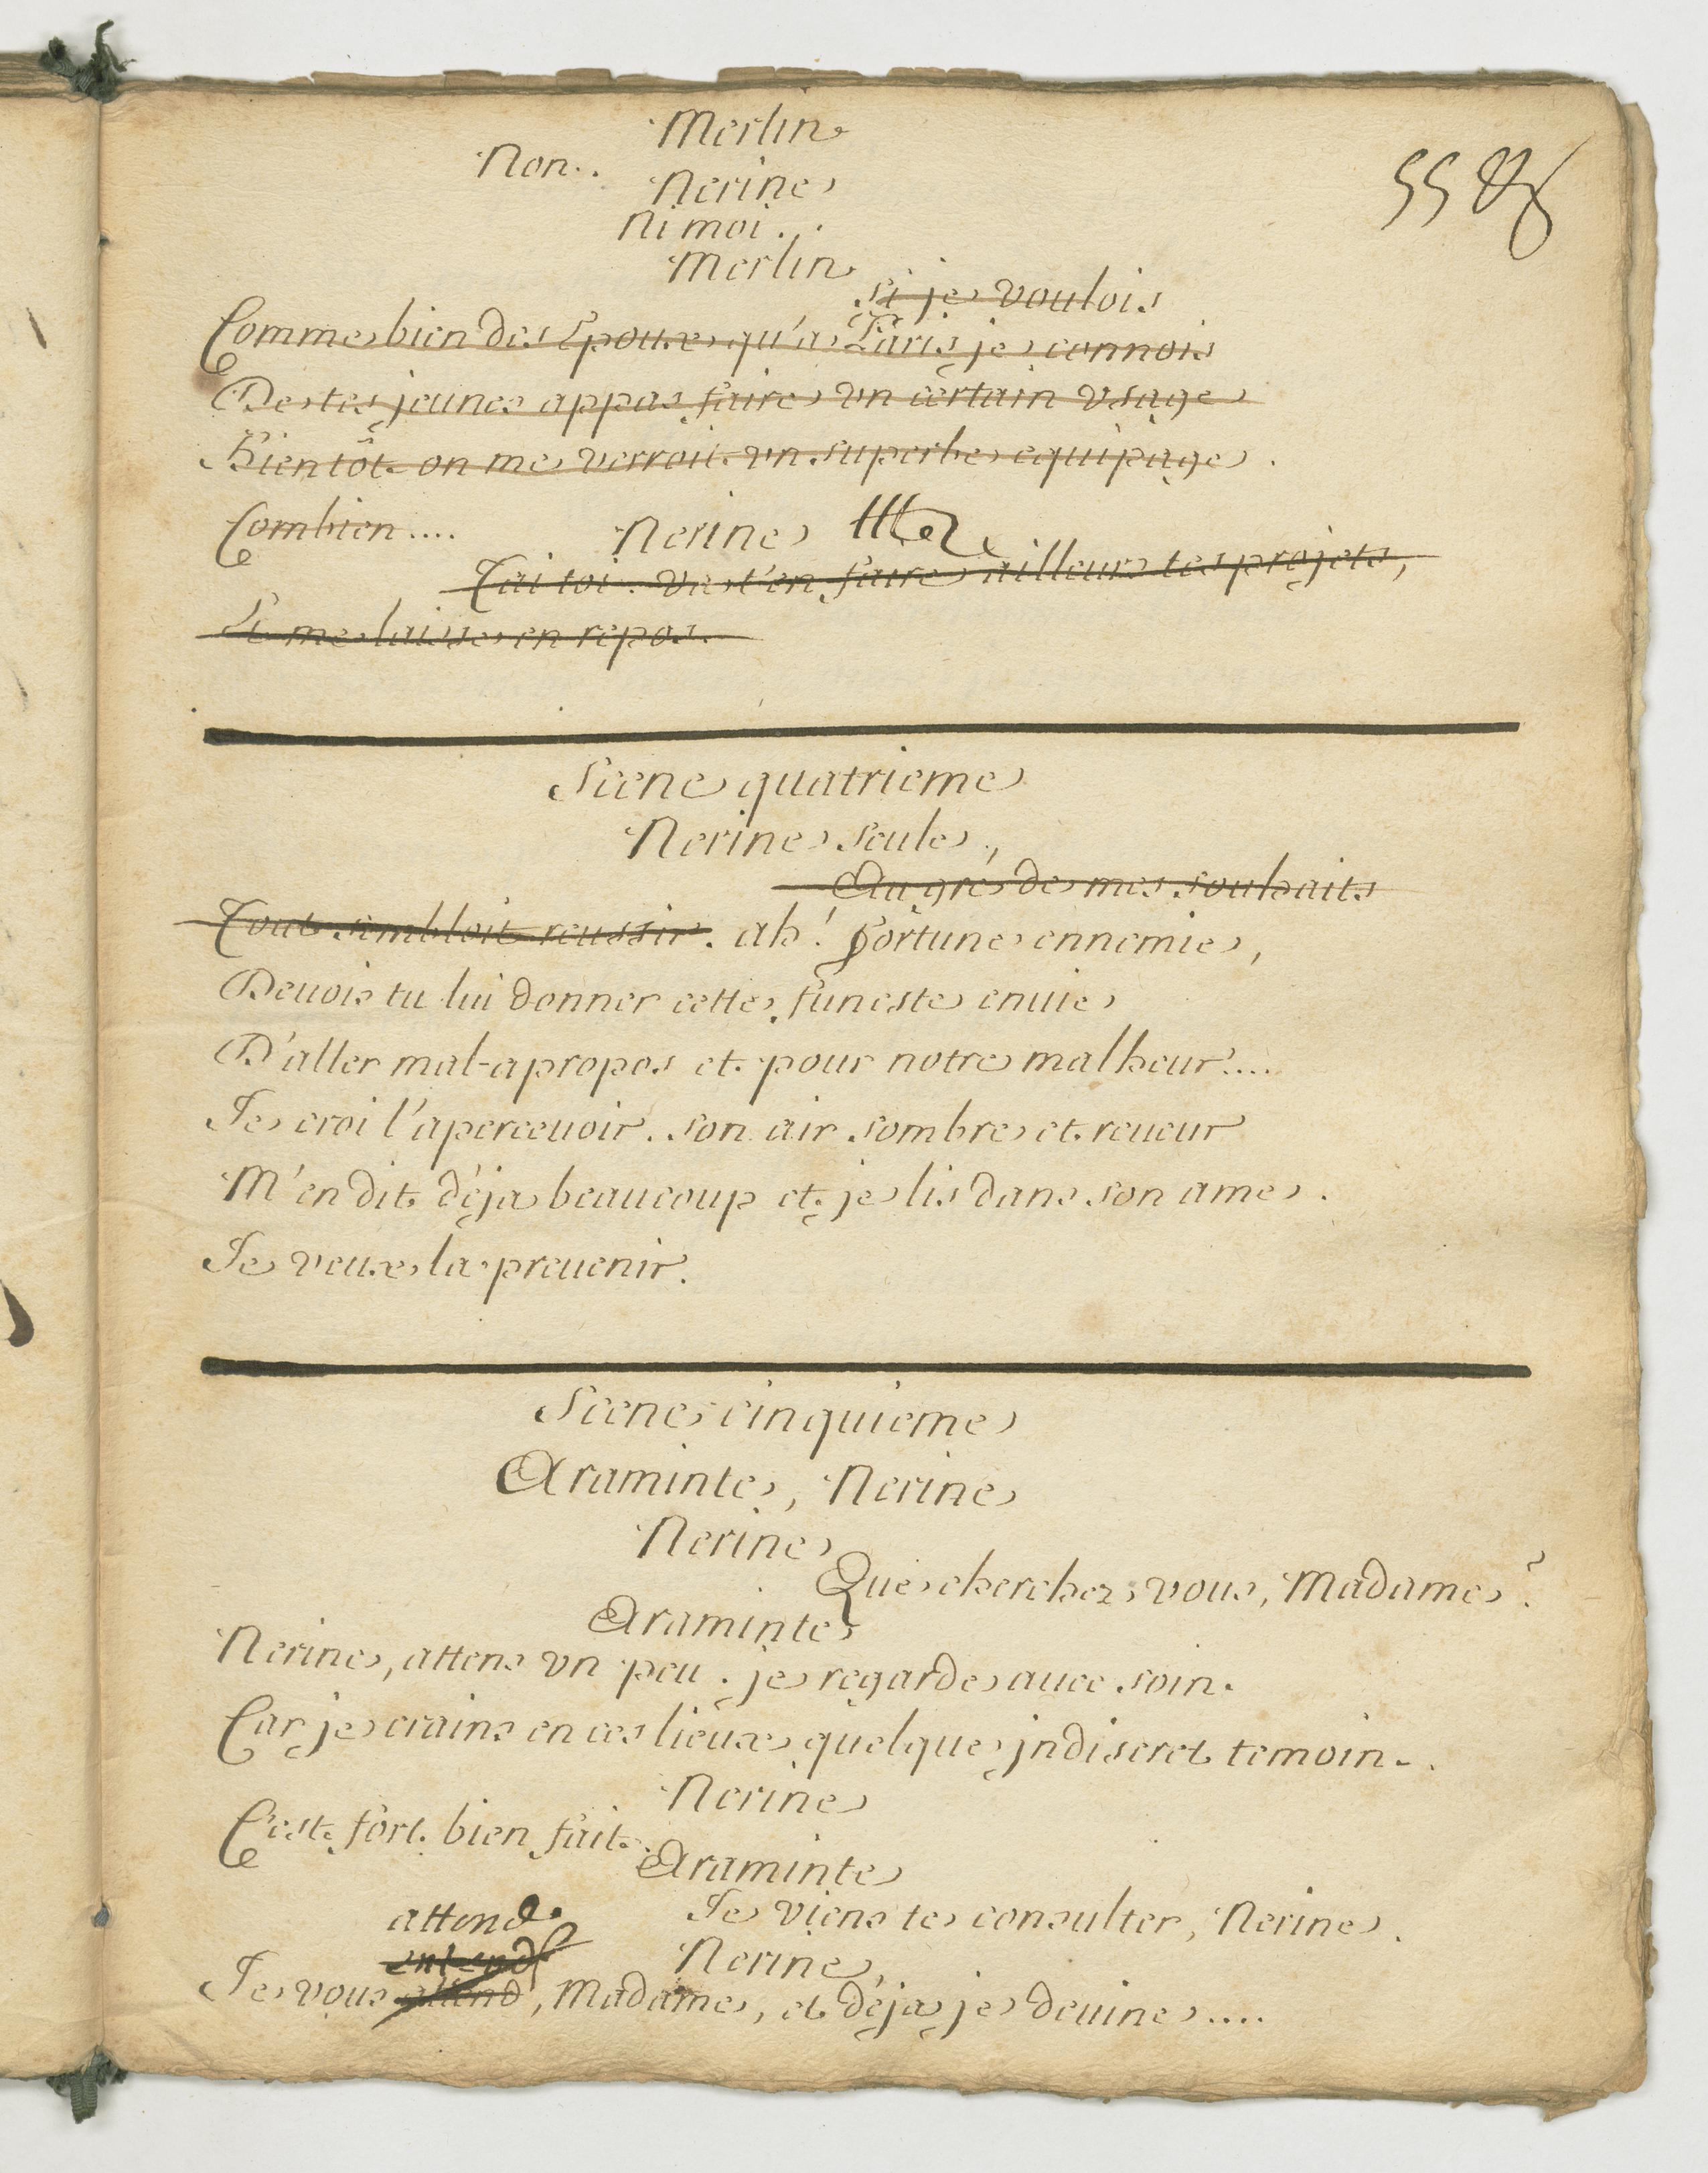 Merlin
Non..
Nerine
Ni moi...
Merlin
Si je voulois
Comme bien des Epoux qu'a Paris je connois
De tes jeunes appas faire vn certain vsage
Bientôt on me verroit vn superbe equipage.
Combien....
Nerine
Tai toi. va t'en faire ailleurs tes projets,
Et me laisse en repos.
Scene quatrieme
Nerine seule,
Au gre de mes souhaits
Tout sembloit reussir. ah! fortune ennemie,
Deuois tu lui donner cette funeste enuie
D'aller mal-apropos et pour notre malheur....
Je croi l'aperceuoir. son air sombre et reueur
M'en dit déja beaucoup et je lis dans son ame.
Je veux la preuenir.
Scene cinquieme
Araminte, Nerine
Nerine
Que cherchez vous, Madame?
Araminte
Nerine, attens vn peu. je regarde auec soin.
Car je crains en ces lieux quelque jndiscret temoin.
Nerine
C'est fort bien fait.
Araminte
Je viens te consulter, Nerine.
Nerine
attend
entend
Je vous attend, Madame, et déja je deuine....